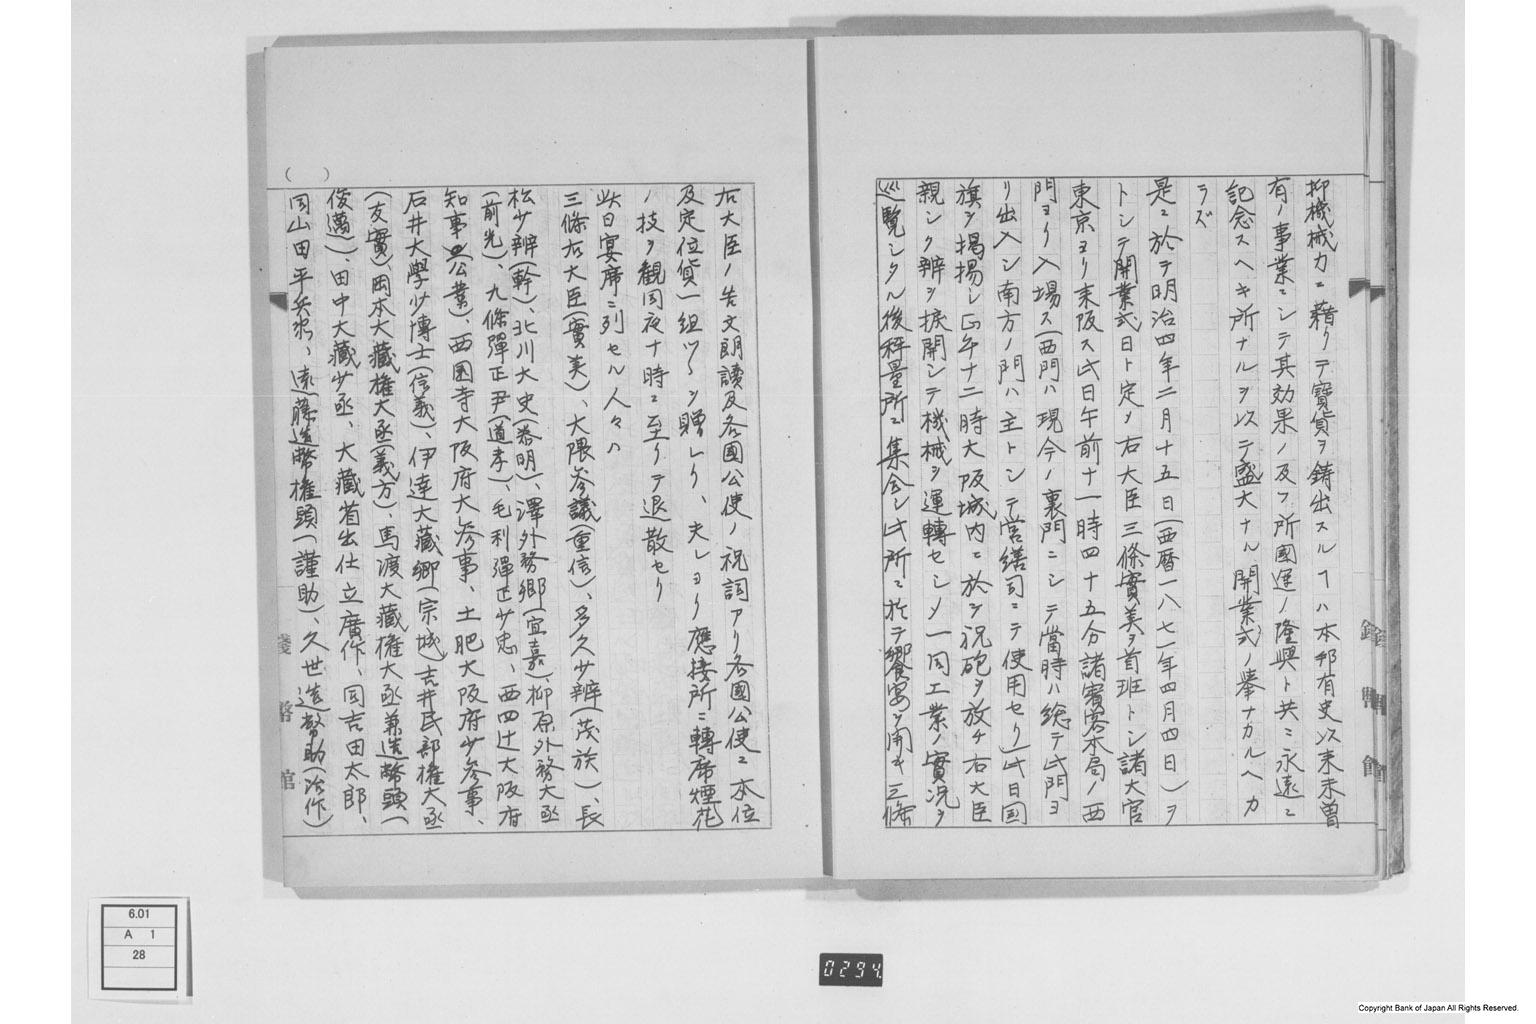 抑機械力ニ藉リテ寳貨ヲ鋳出スルヿハ本邦有史以来未曽
有ノ事業ニシテ其効果ノ及フ所國運ノ隆興ト共ニ永遠ニ
記念スヘキ所ナルヲ以テ盛大ナル開業式ノ擧ナカルヘカ
ラズ
是ニ於テ明治四年二月十五日(西暦一八七一年四月四日)ヲ
トシテ開業式日ト定メ右大臣三條實美ヲ首班トシ諸大官
東京ヨリ来阪ス此日午前十一時四十五分諸賓客本局ノ西
門ヨリ入場ス(西門ハ現今ノ裏門ニシテ當時ハ総テ此門ヨ
リ出入シ南方ノ門ハ主トシテ営繕司ニテ使用セリ)此日国
旗ヲ掲揚シ正午十二時大阪城内ニ於テ祝砲ヲ放チ右大臣
親シク辨ヲ捩開シテ機械ヲ運轉セシメ一同工業ノ實況ヲ
巡覧シタル後秤量所ニ集会シ此所ニ於テ饗宴ヲ開キ三條
右大臣ノ告文朗讀及各國公使ノ祝詞アリ各國公使ニ本位
及定位貨一組ツヽヲ贈レリ、夫レヨリ應接所ニ轉席煙花
ノ技ヲ観同夜十時ニ至リテ退散セリ
此日宴席ニ列セル人々ハ
三條右大臣(實美)、大隈参議(重信)、多久少辨(茂族)、長
松少辨(幹)、北川大史(泰明)、澤外務卿(宣嘉)、柳原外務大丞
(前光)、九條彈正尹(道孝)、毛利彈正少忠、西四辻大阪府
知事(公業)、西園寺大阪府大参事、土肥大阪府少参事、
石井大學少博士(信義)、伊達大藏卿(宗城)吉井民部権大丞
(友實)、岡本大藏権大丞(義方)、馬渡大藏権大丞兼造幣頭(
俊邁)、田中大藏少丞、大藏省出仕立廣作、同吉田太郎、
同山田平兵衛、遠藤造幣権頭(謹助)、久世造幣助(治作)
(　)
0294
6.01
A 1
28
Copyright Bank of Japan All Rights Reserved.